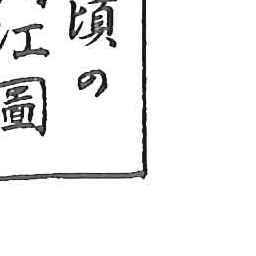 頃の
江圖